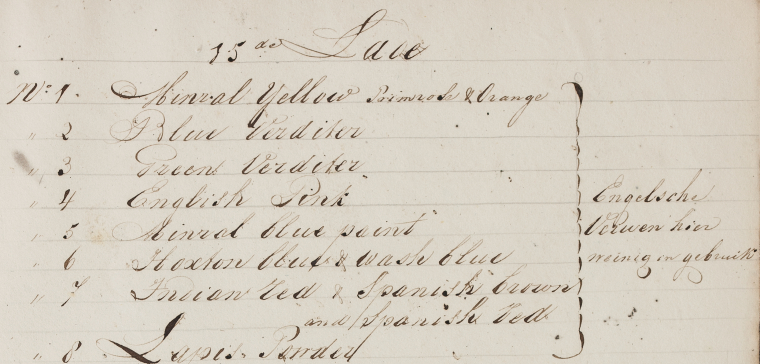 15de Lade
No 1. Minral Yellow Primrose & Orange
" 2 Blue Verditer
" 3 Green Verditer
" 4 English Pink
" 5 Minral blue paint
" 6 Hoxton blue & wash blue
" 7 Indian Red & Spanish brown
and Spanish Red
" 8 Lapis. Powder
Engelsche
Verwen hier
weinig in gebruik